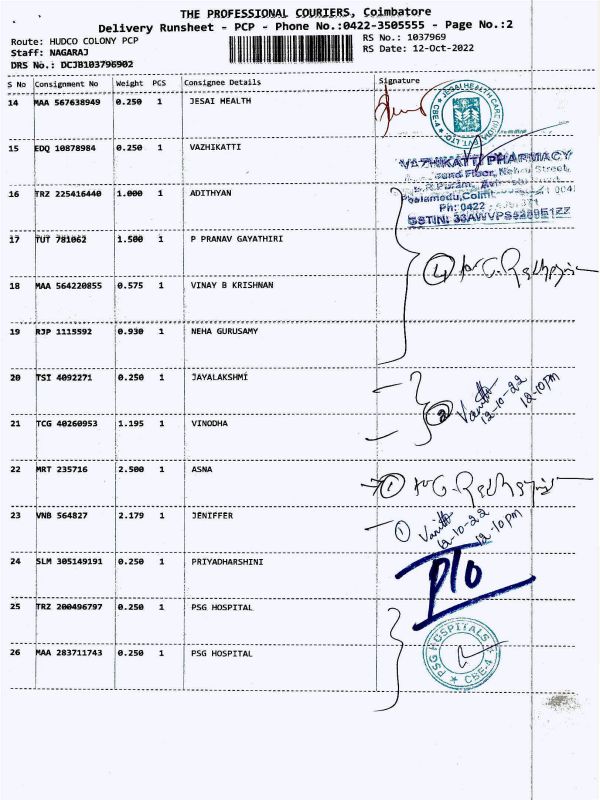 THE PROFESSIONAL COURIERS, Coimbatore
Delivery Runsheet - PCP - Phone No.:0422-3505555 - Page No.:2
Route: HUDCO COLONY PCP
RS No.: 1037969
Staff: NAGARAJ
RS Date: 12-Oct-2022
DRS No.: DCJB103796902
S No Consignment No Weight PCS Consignee Details Signature
14 MAA 567638949 0.250 1 JESAI HEALTH
JESAI HEALTH CARE
CBE-4
15 EDQ 10878984 0.250 1 VAZHIKATTI
VAZHIKATTI PHARMACY
Floor, Nehru Street,
Peelamedu,
Ph: 0422
16 TRZ 225416440 1.000 1 ADITHYAN
17 TUT 781062 1.500 1 P PRANAV GAYATHIRI
4
18 MAA 564220855 0.575 1 VINAY B KRISHNAN
19 RJP 1115592 0.930 1 NEHA GURUSAMY
20 TSI 4092271 0.250 1 JAYALAKSHMI
2 12-10-22
12.10pm
21 TCG 40260953 1.195 1 VINODHA
22 MRT 235716 2.500 1 ASNA
1
23 VNB 564827 2.179 1 JENIFFER
1 12-10-22
12.10pm
24 SLM 305149191 0.250 1 PRIYADHARSHINI
P/O
25 TRZ 200496797 0.250 1 PSG HOSPITAL
26 MAA 283711743 0.250 1 PSG HOSPITAL
PSG HOSPITALS
CBE-4